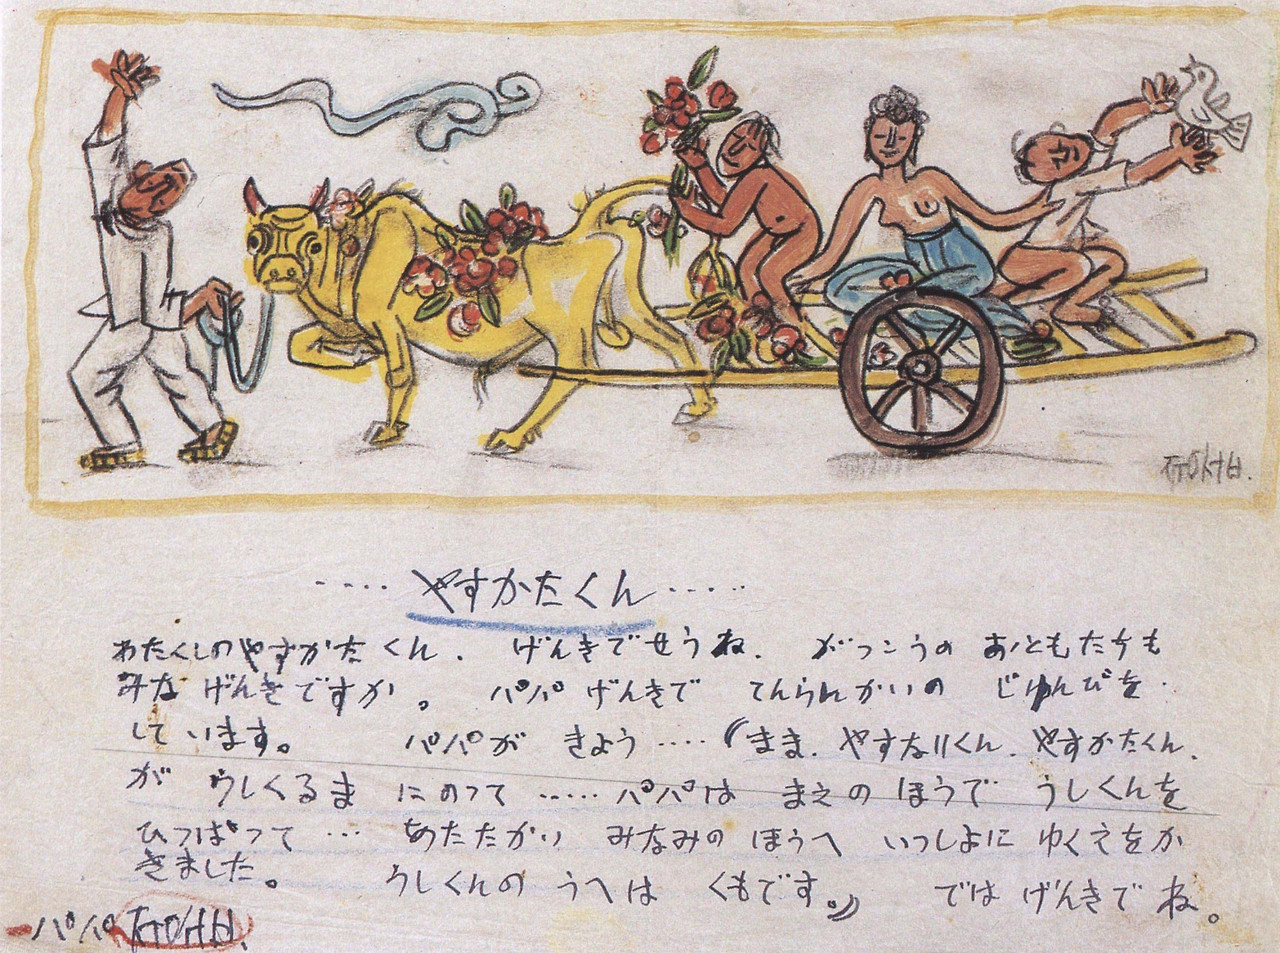 ‥‥やすかたくん‥‥‥
わたくしのやすかたくん.げんきでせうね.がっこうのおともたちも
みなげんきですか。パパげんきでてんらんかいのじゅんびを.
しています。パパがきょう‥‥((まま.やすなりくん.やすかたくん.
がうしくるまにのって‥‥‥パパはまえのほうでうしくんを
ひっぱって…あたたかいみなみのほうへいっしょにゆくえをか
きました。うしくんのうへはくもです。))ではげんきでね。
ーパパ